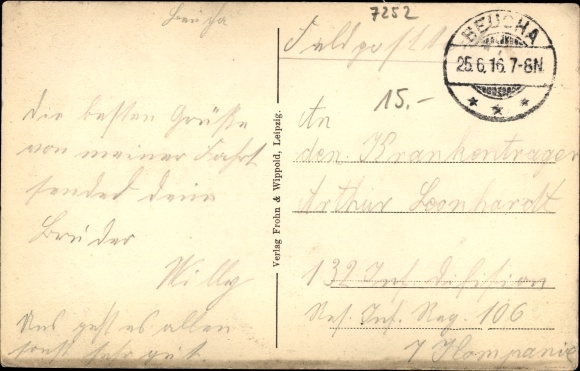 Beucha
7252
Feldpost
BEUCHA
25.6.16.7-8N.
15.-
Die besten Grüße
von meiner Fahrt
sendet dein
Bruder
Willy
Uns geht es allen
sonst sehr gut.
Verlag Frohn & Wippold, Leipzig.
An
den Krankenträger
Arthur Leonhardt
Inf. Division
Res. Inf. Reg. 106
7 Kompanie